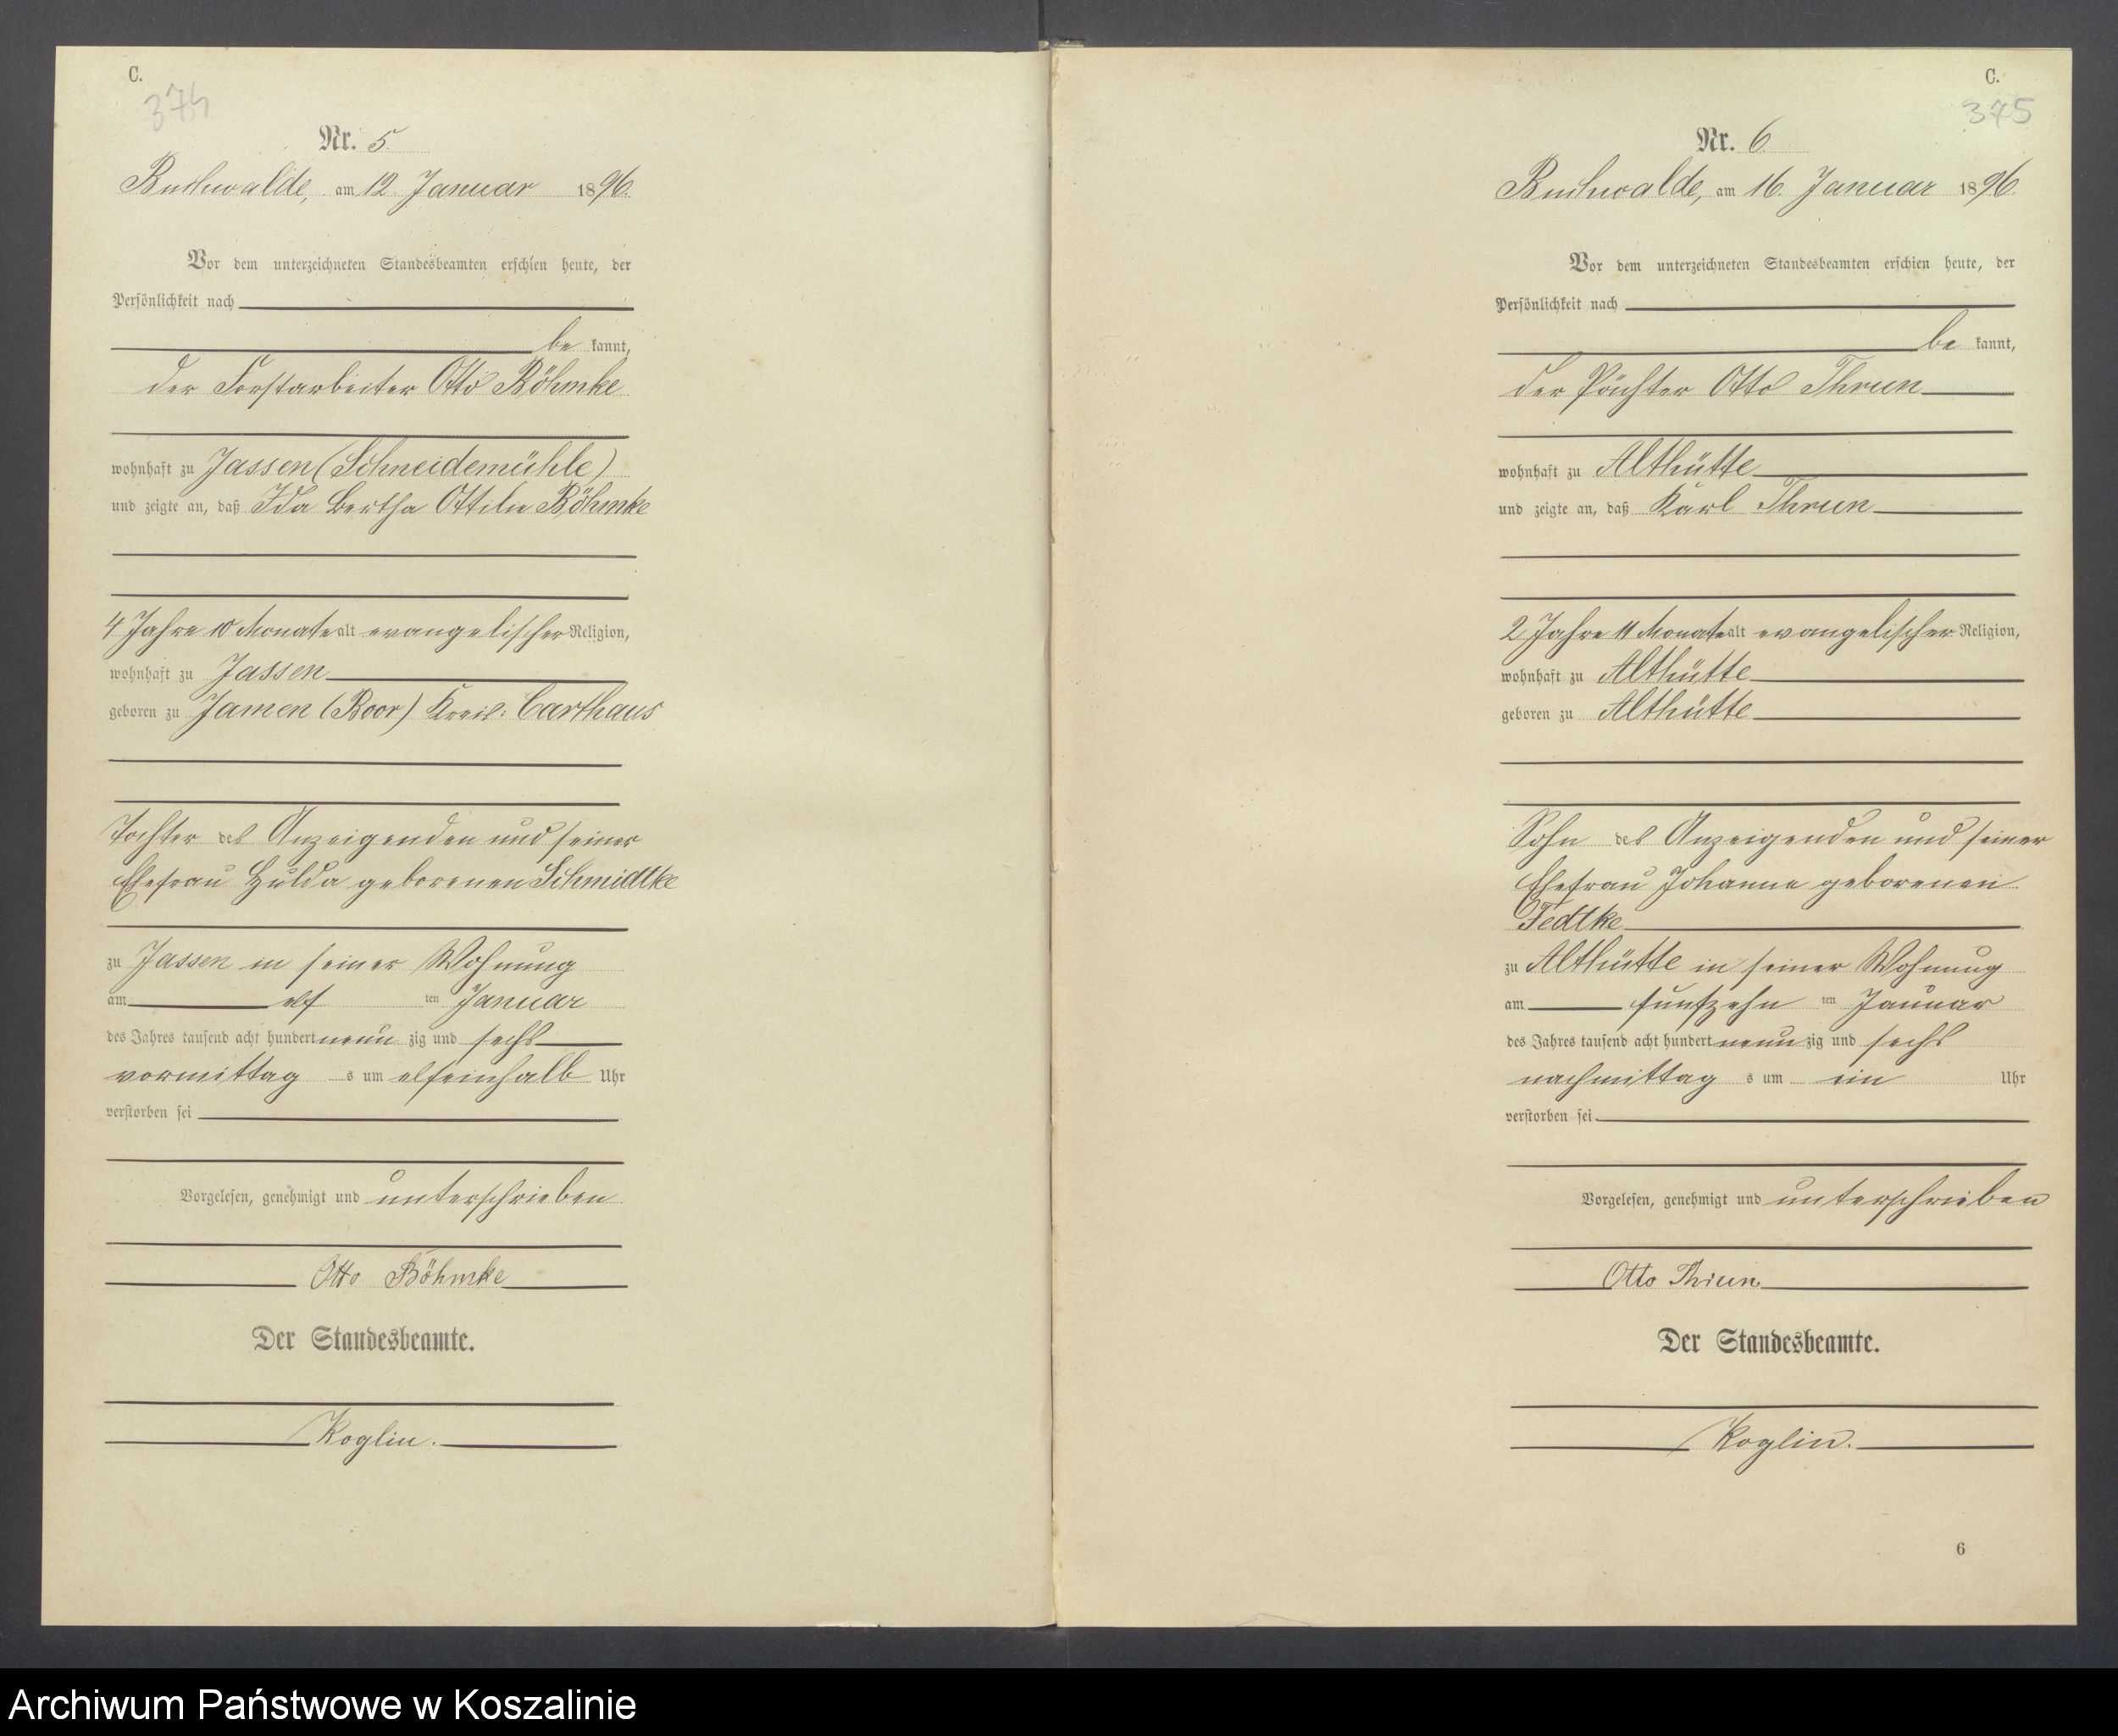 C.
374
Nr. 5.
Buchwalde, am 12. Januar 1896.
Vor dem unterzeichneten Standesbeamten erschien heute, der
Persönlichkeit nach
be kannt,
der Forstarbeiter Otto Böhmke
wohnhaft zu Jassen (Schneidemühle)
und zeigte an, daß Ida Bertha Ottilie Böhmke
4 Jahre 10 Monate alt evangelischer Religion,
wohnhaft zu Jassen
geboren zu Jamen (Boor) Kreis: Carthaus
Tochter des Anzeigenden und seiner
Ehefrau Hulda geborenen Schmidtke
zu Jassen in seiner Wohnung
am elf ten Januar
des Jahres tausend acht hundert neun zig und sechs
vormittag s um elfeinhalb Uhr
verstorben sei
Vorgelesen, genehmigt und unterschrieben
Otto Böhmke
Der Standesbeamte.
Koglin.
C.
375
Nr. 6.
Buchwalde, am 16. Januar 1896.
Vor dem unterzeichneten Standesbeamten erschien heute, der
Persönlichkeit nach
be kannt,
der Pächter Otto Thrun
wohnhaft zu Althütte
und zeigte an, daß Karl Thrun
2 Jahre 11 Monate alt evangelischer Religion,
wohnhaft zu Althütte
geboren zu Althütte
Sohn des Anzeigenden und seiner
Ehefrau Johanne geborenen
Fedtke
zu Althütte in seiner Wohnung
am fünfzehn ten Januar
des Jahres tausend acht hundert neun zig und sechs
nachmittag s um ein Uhr
verstorben sei
Vorgelesen, genehmigt und unterschrieben
Otto Thrun
Der Standesbeamte.
Koglin.
6
Archiwum Państwowe w Koszalinie